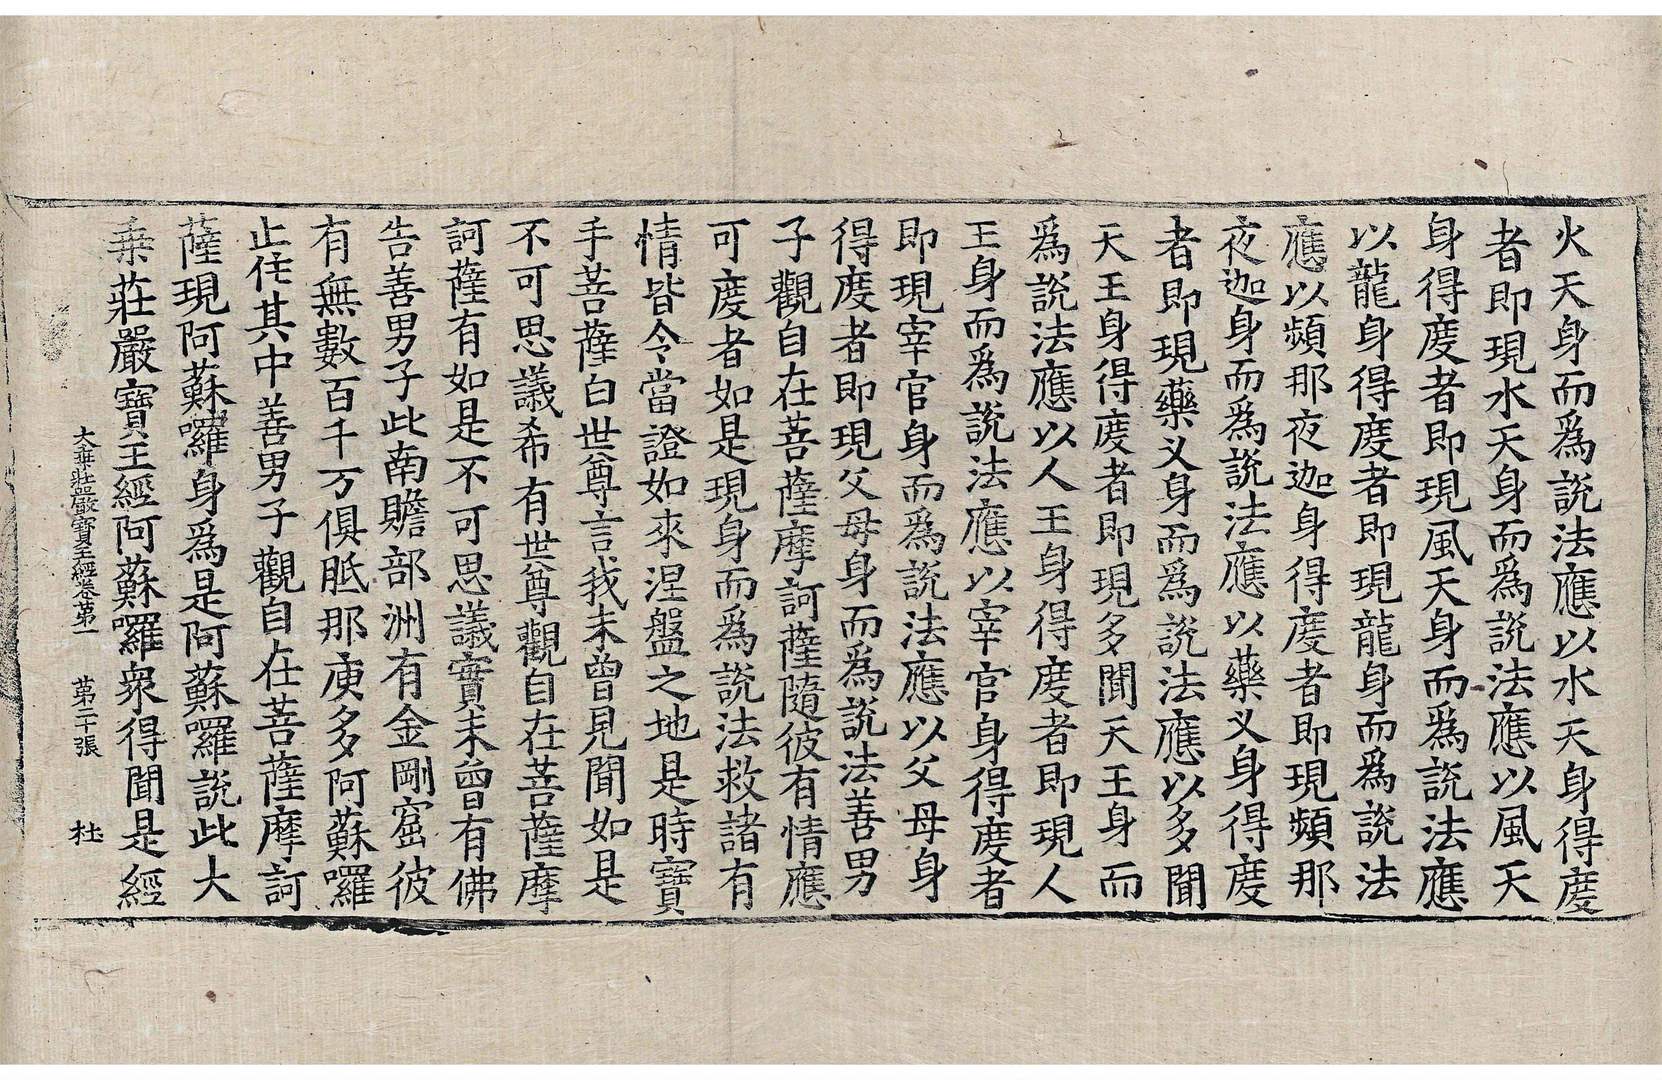 火天身而為說法應以水天身得度
者即現水天身而為說法應以風天
身得度者即現風天身而為說法應
以龍身得度者即現龍身而為說法
應以頻那夜迦身得度者即現頻那
夜迦身而為說法應以藥叉身得度
者即現藥叉身而為說法應以多聞
天王身得度者即現多聞天王身而
為說法應以人王身得度者即現人
王身而為說法應以宰官身得度者
即現宰官身而為說法應以父母身
得度者即現父母身而為說法善男
子觀自在菩薩摩訶薩隨彼有情應
可度者如是現身而為說法救諸有
情皆令當證如來涅盤之地是時寶
手菩薩白世尊言我未曾見聞如是
不可思議希有世尊觀自在菩薩摩
訶薩有如是不可思議實未曾有佛
告善男子此南贍部洲有金剛窟彼
有無數百千万俱胝那庾多阿蘇囉
止住其中善男子觀自在菩薩摩訶
薩現阿蘇囉身為是阿蘇囉說此大
乗莊嚴寶王經阿蘇囉衆得聞是經
大乗莊嚴寶王經卷第一 第二十張 杜